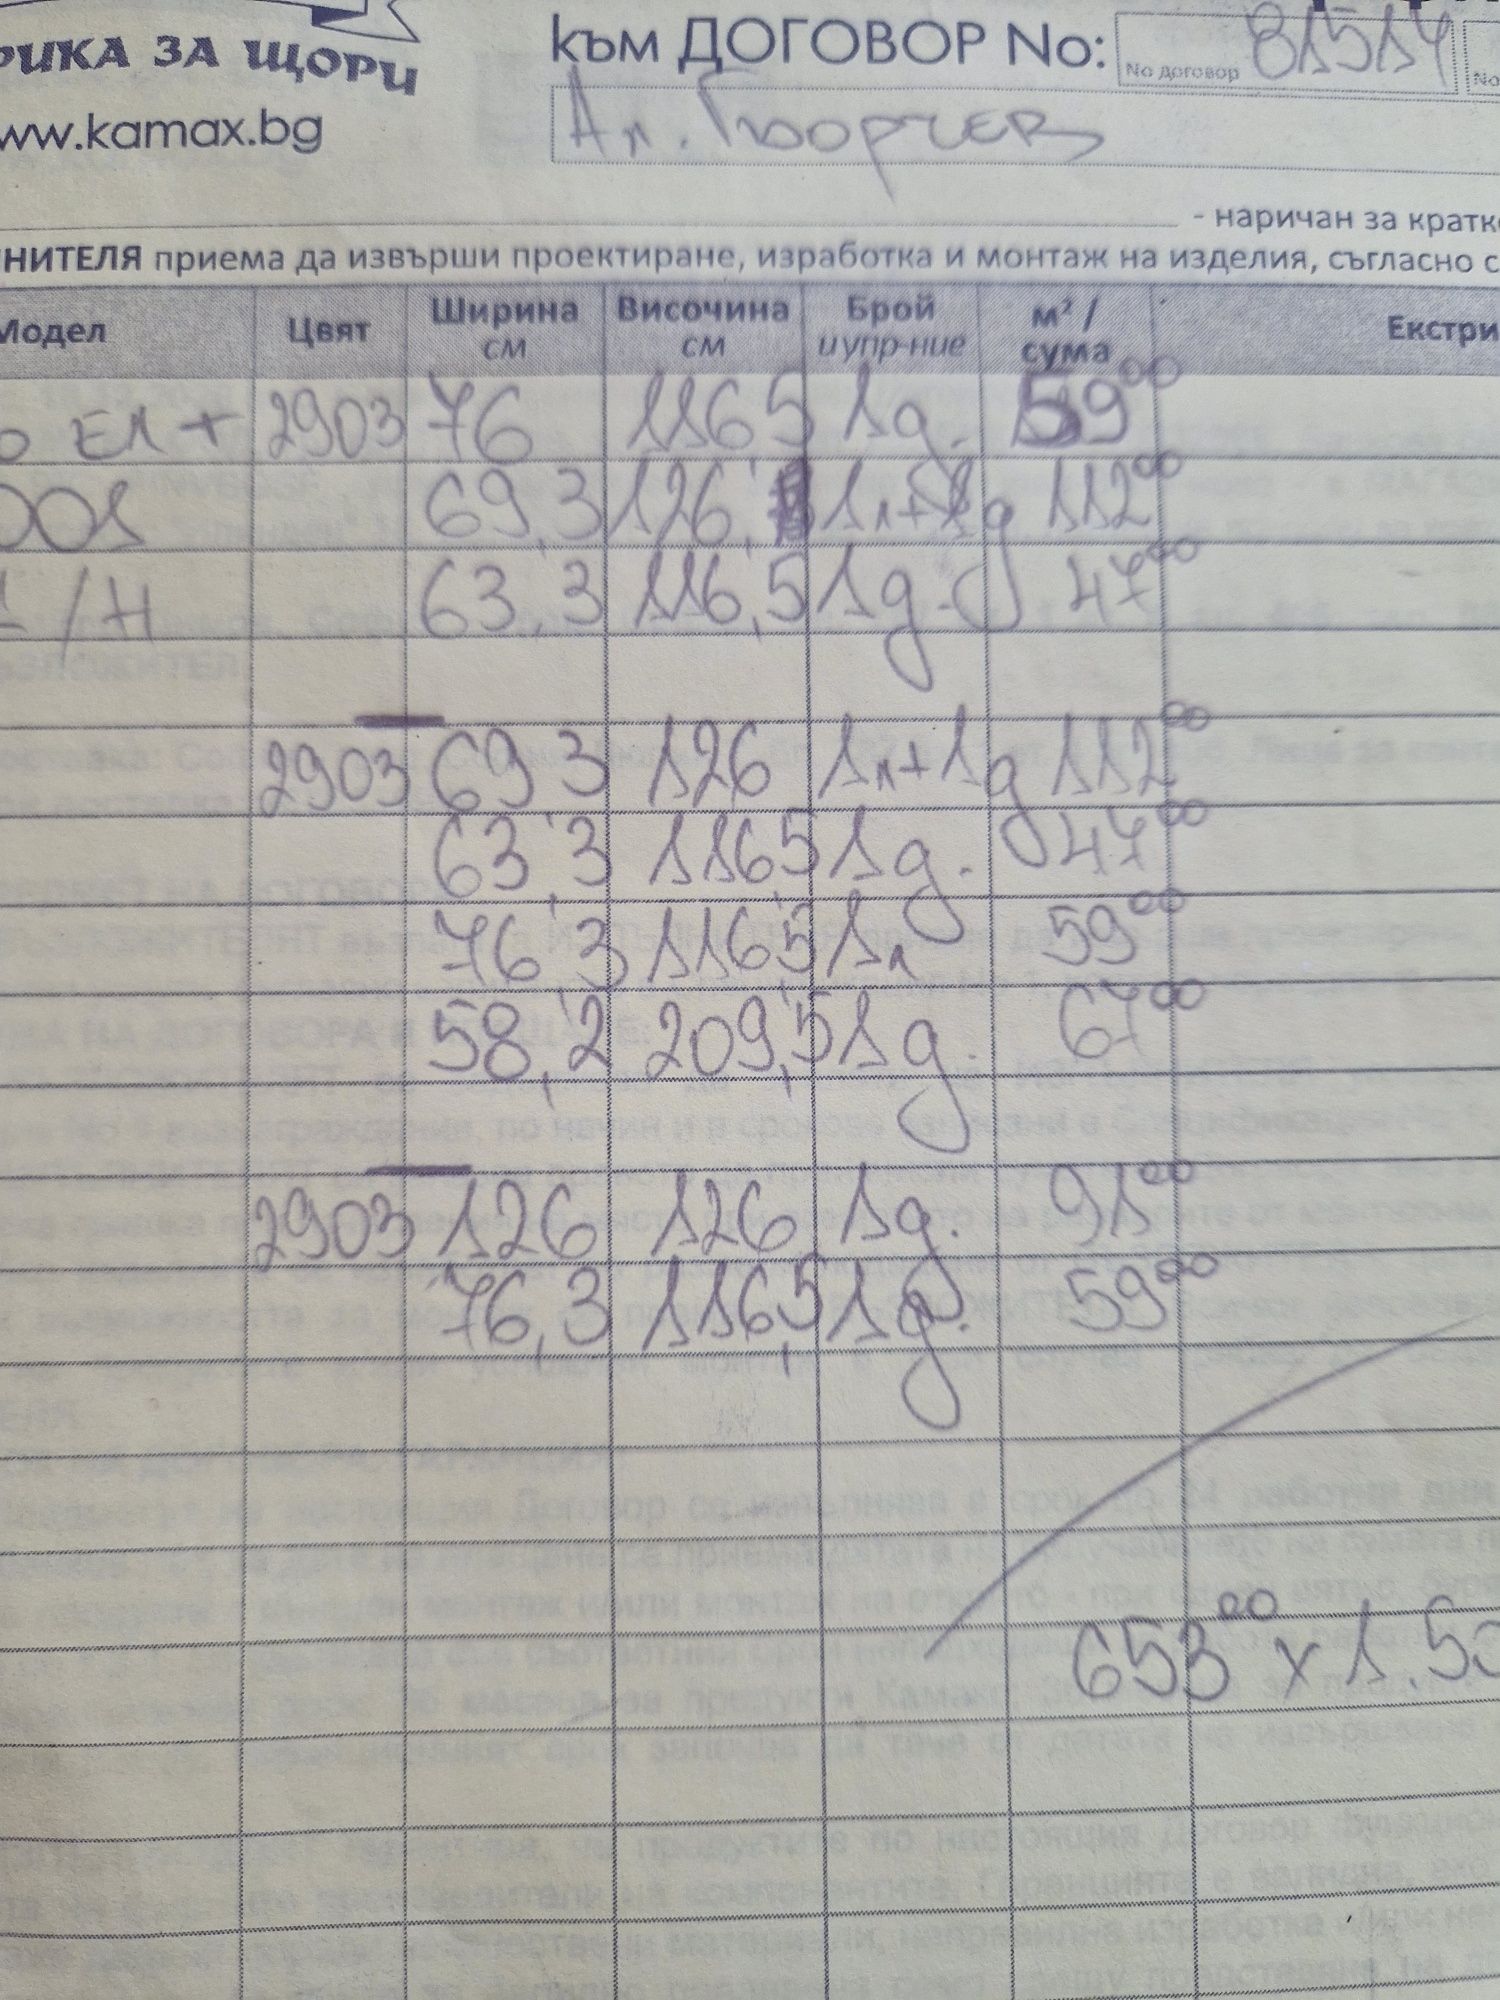 РИКА ЗА ЩОРИ
към ДОГОВОР No:
No договор 81514
No
www.kamax.bg
Ал. Георгиев
- наричан за кратко
НИТЕЛЯ приема да извърши проектиране, изработка и монтаж на изделия, съгласно с
Модел Цвят Ширина см Височина см Брой и упр-ние м² / сума Екстри
2903 76 116,5 1д. 59⁰⁰
001 69,3 126, 1л+1д 112⁰⁰
1/Н 63,3 116,5 1д. 47⁰⁰
2903 69,3 126 1л+1д 112⁰⁰
63,3 116,5 1д. 47⁰⁰
76,3 116,5 1л 59⁰⁰
58,2 209,5 1д. 67⁰⁰
2903 126 126 1д. 91⁰⁰
76,3 116,5 1д. 59⁰⁰
653⁰⁰ x 1.5